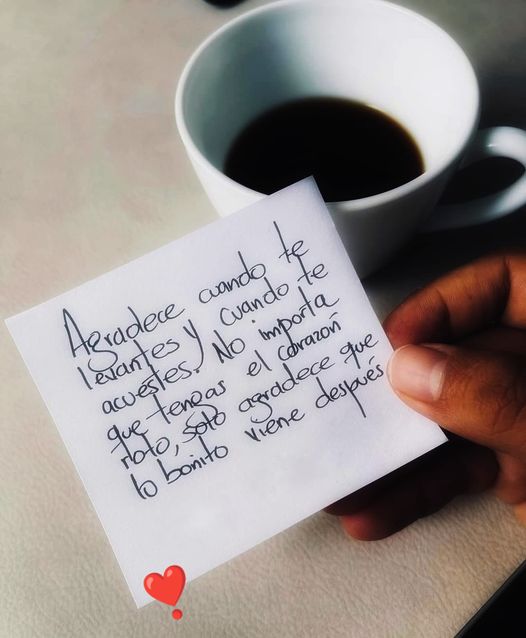 Agradece cuando te
levantes y cuando te
acuestes. No importa
que tengas el corazón
roto, solo agradece que
lo bonito viene después